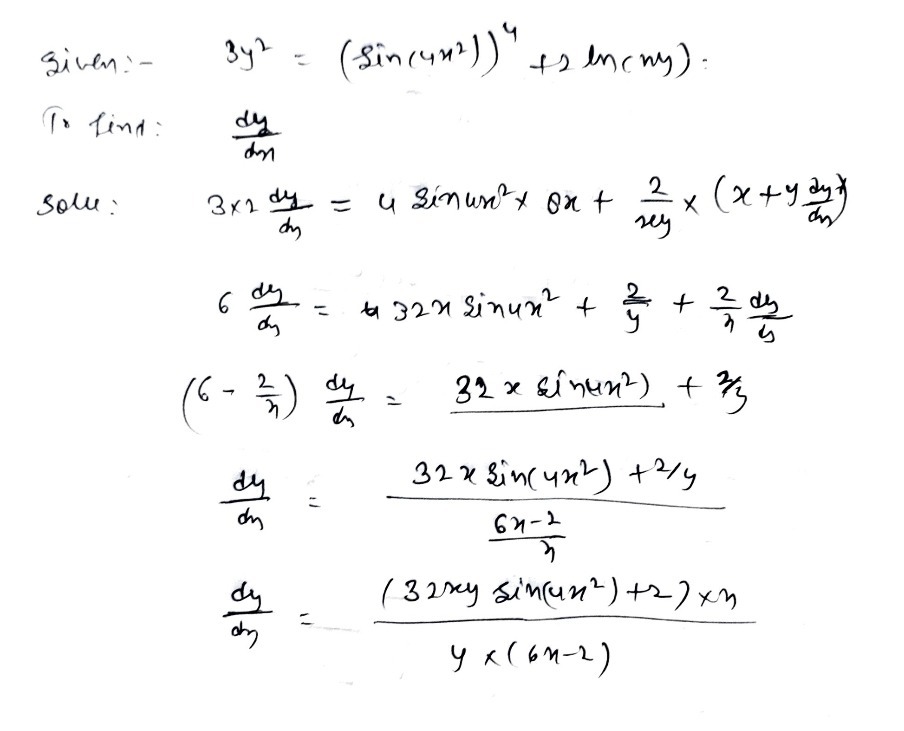 Given:- 3y² = (sin(4x²))⁴ + 2 ln(xy).
To find: dy/dx
Solu: 3×2 dy/dx = 4 sin4x² × 8x + 2/xy × (x + y dy/dx)
6 dy/dx = 32x sin4x² + 2/y + 2/x dy/dx
(6 - 2/x) dy/dx = 32 x sin4x²) + 2/y
dy/dx = (32x sin(4x²) + 2/y) / ((6x-2)/x)
dy/dx = ((32xy sin(4x²) + 2) × x) / (y × (6x-2))